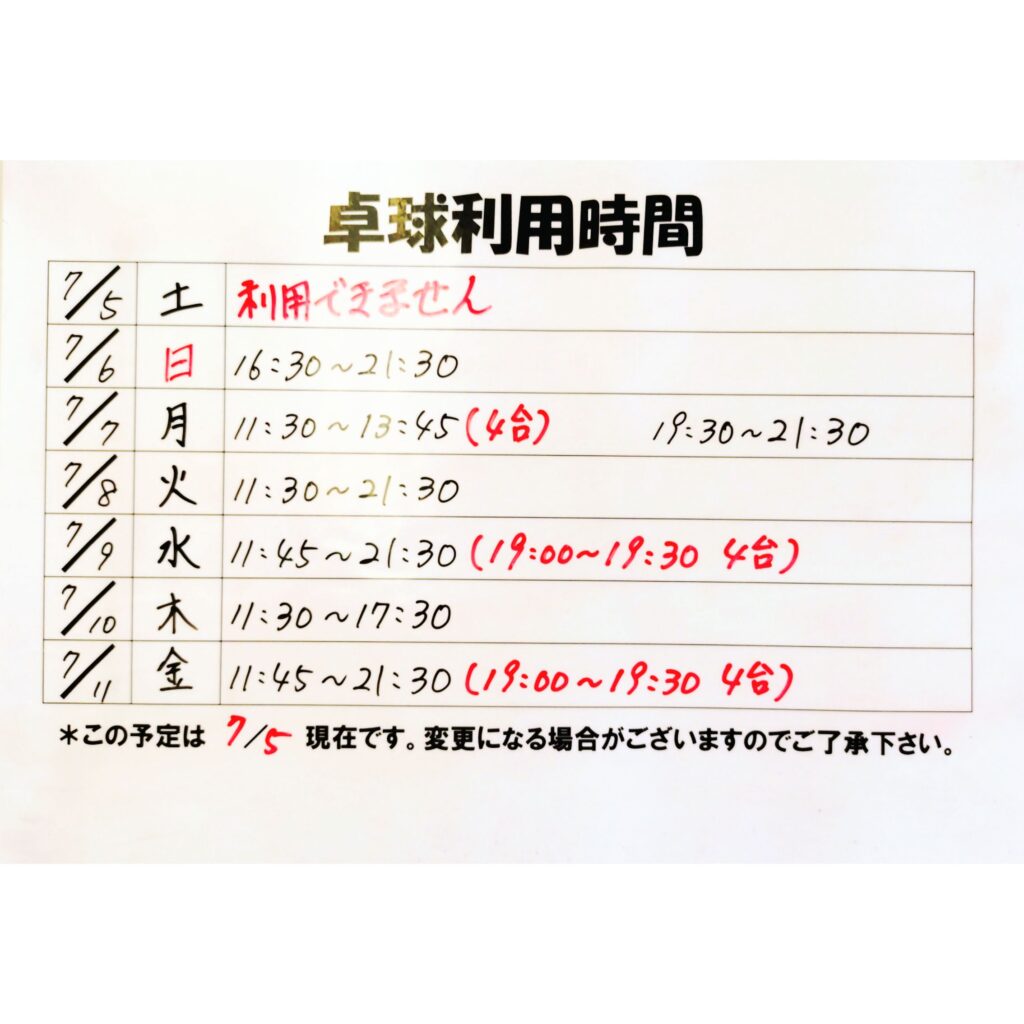 卓球利用時間
7/5 土 利用できません
7/6 日 16:30~21:30
7/7 月 11:30~13:45(4台) 19:30~21:30
7/8 火 11:30~21:30
7/9 水 11:45~21:30(19:00~19:30 4台)
7/10 木 11:30~17:30
7/11 金 11:45~21:30(19:00~19:30 4台)
*この予定は 7/5 現在です。変更になる場合がございますのでご了承下さい。